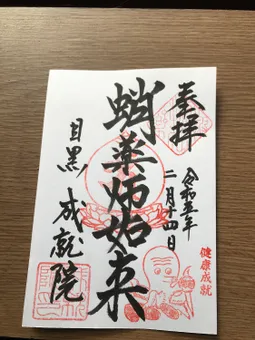 奉拝
令和五年
二月十四日
健康成就
蛸薬師如来
目黒 成就院